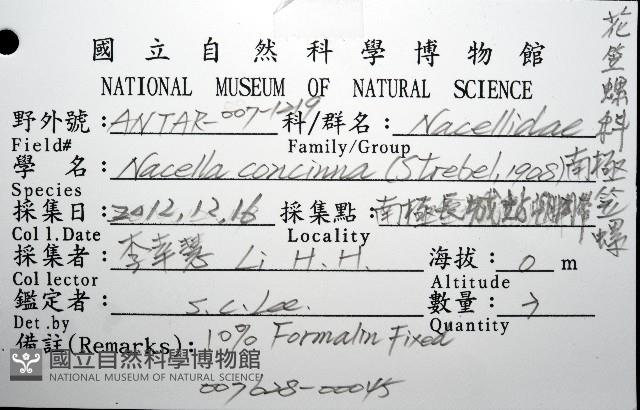 國立自然科學博物館
NATIONAL MUSEUM OF NATURAL SCIENCE
野外號: ANTAR-007-1219 科/群名: Nacellidae
Field# Family/Group
學 名: Nacella concinna (Strebel, 1908) 南極笠螺
Species
採集日: 2012, 12, 16 採集點: 南極長城站潮間帶
Coll.Date Locality
採集者: 李幸慧 Li H.H. 海拔: 0 m
Collector Altitude
鑑定者: S.C. Lee. 數量: 7
Det.by Quantity
備註(Remarks): 10% Formalin Fixed
007628-00045
花笠螺科
國立自然科學博物館
NATIONAL MUSEUM OF NATURAL SCIENCE